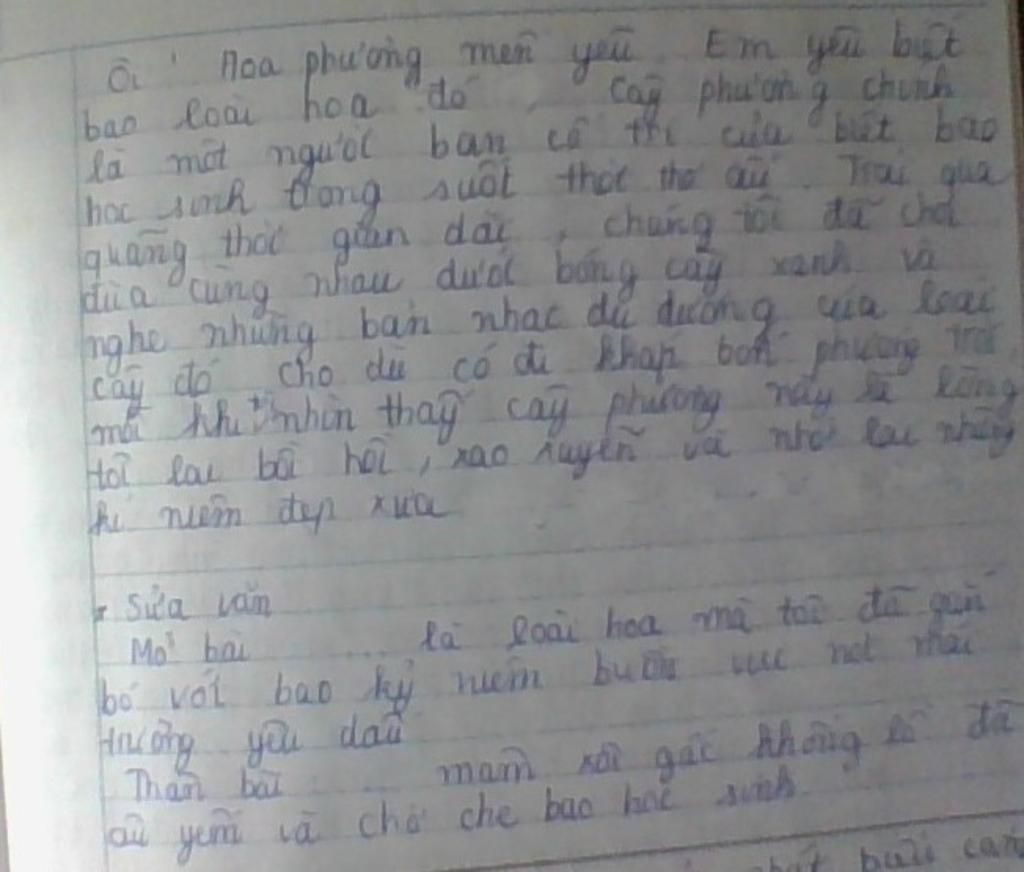 Ôi ! Hoa phượng mến yêu. Em yêu biết
bao loài hoa đó. Cây phượng chính
là một người bạn cố tri của biết bao
học sinh trong suốt thời thơ ấu. Trải qua
quãng thời gian dài, chúng tôi đã chơi
đùa cùng nhau dưới bóng cây xanh và
nghe những bản nhạc du dương của loài
cây đó. Cho dù có đi khắp bốn phương trời
mỗi khi nhìn thấy cây phượng này là lòng
tôi lại bồi hồi, xao xuyến và nhớ lại những
kỉ niệm đẹp xưa
* Sửa văn
Mở bài ... là loài hoa mà tôi đã gắn
bó với bao kỷ niệm buồn vui nơi mái
trường yêu dấu
Thân bài ... mâm xôi gấc khổng lồ đã
âu yếm và chở che bao học sinh
buổi